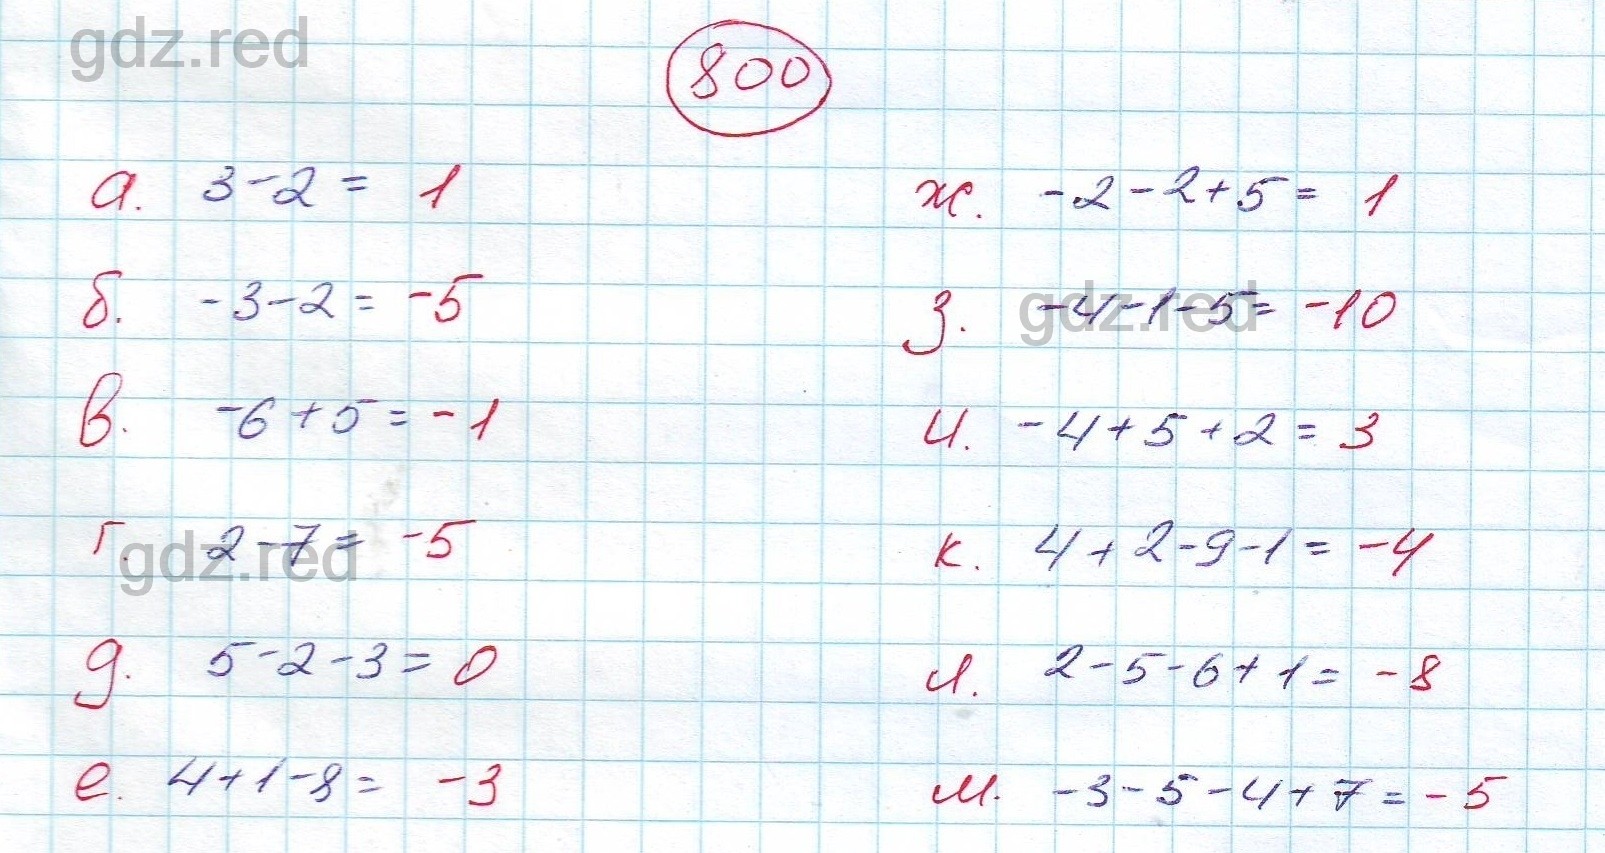 gdz.red
800
а. 3-2= 1
б. -3-2= -5
в. -6+5= -1
г. 2-7= -5
д. 5-2-3= 0
е. 4+1-8= -3
ж. -2-2+5= 1
з. -4-1-5= -10
и. -4+5+2= 3
к. 4+2-9-1= -4
л. 2-5-6+1= -8
м. -3-5-4+7= -5
gdz.red
gdz.red